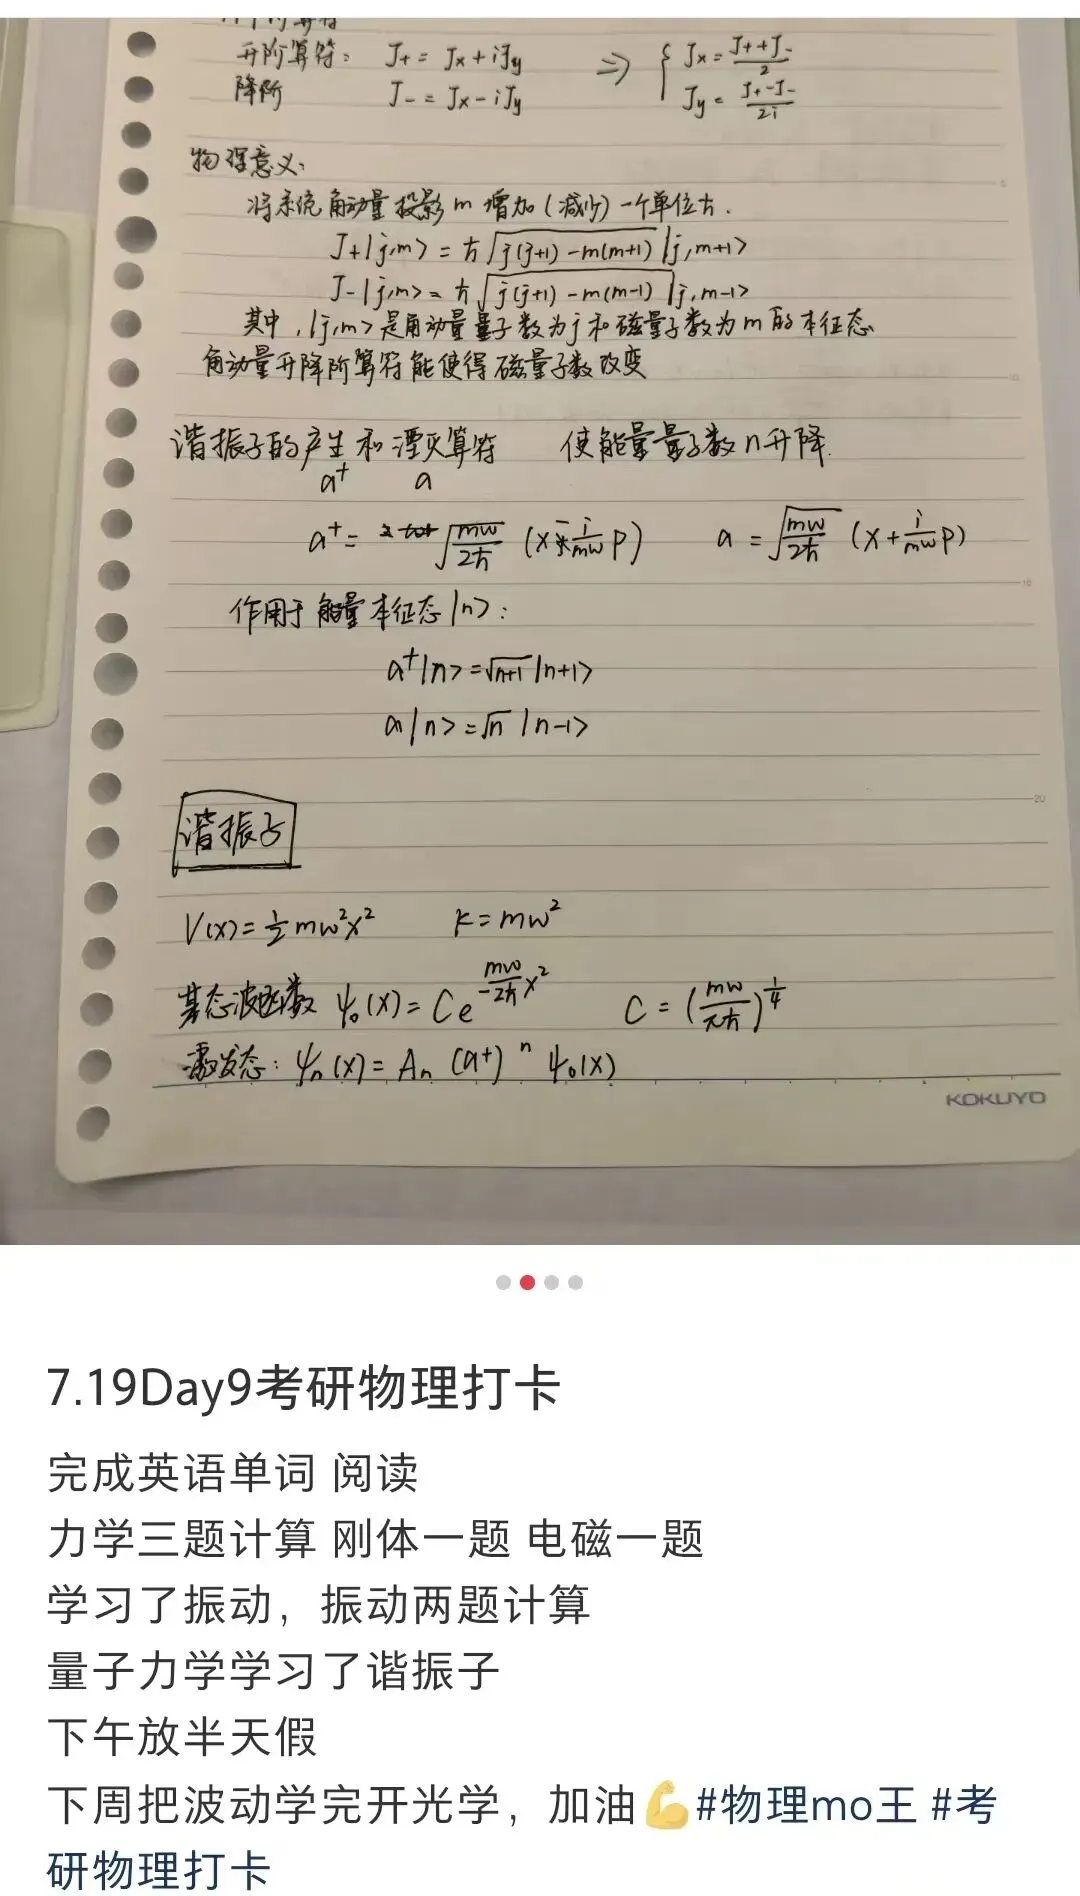 升阶算符: J+ = Jx + iJy ⇒ { Jx = (J+ + J-)/2
降阶 J- = Jx - iJy Jy = (J+ - J-)/2i
物理意义:
将系统角动量投影m增加(减少)一个单位ħ.
J+|j,m> = ħ√(j(j+1)-m(m+1)) |j,m+1>
J-|j,m> = ħ√(j(j+1)-m(m-1)) |j,m-1>
其中,|j,m>是角动量量子数为j和磁量子数为m的本征态
角动量升降阶算符能使得磁量子数改变
谐振子的产生和湮灭算符 使能量量子数n升降.
a⁺ a
a⁺ = √(mω/2ħ) (x - i/mω p) a = √(mω/2ħ) (x + i/mω p)
作用于能量本征态|n>:
a⁺|n> = √(n+1) |n+1>
a|n> = √n |n-1>
谐振子
V(x) = ½mω²x² k = mω²
基态波函数 ψ₀(x) = Ce^(-mω/2ħ x²) C = (mω/πħ)^(1/4)
激发态: ψn(x) = An (a+)ⁿ ψ₀(x)
KOKUYO
7.19Day9考研物理打卡
完成英语单词 阅读
力学三题计算 刚体一题 电磁一题
学习了振动，振动两题计算
量子力学学习了谐振子
下午放半天假
下周把波动学完开光学，加油💪#物理mo王 #考
研物理打卡